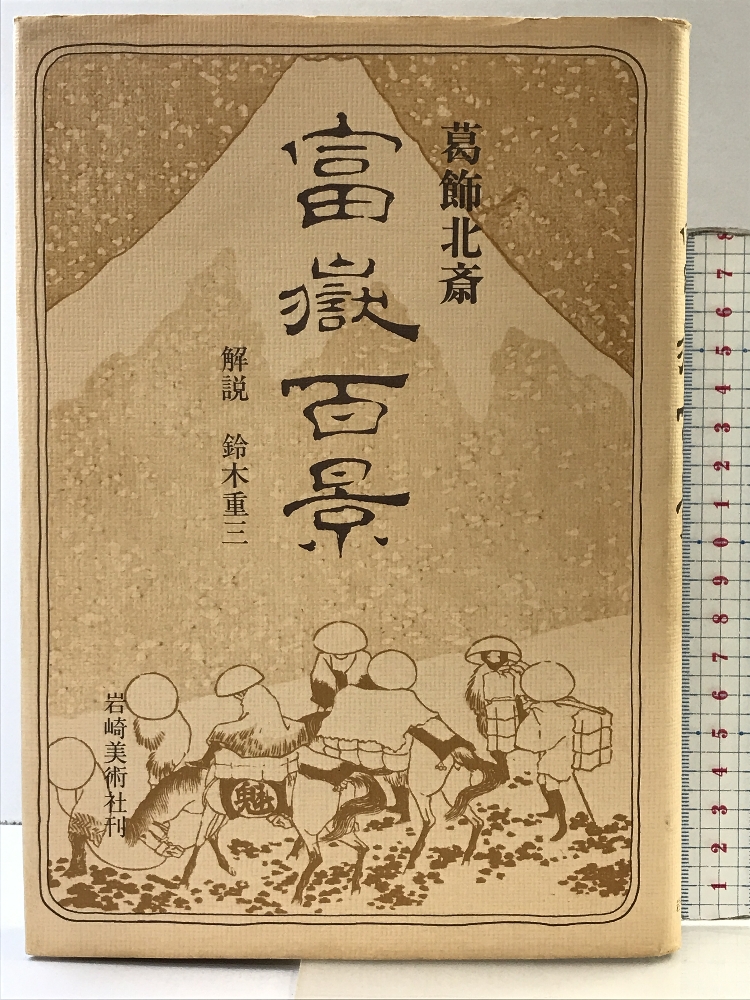 葛飾北斎
富嶽百景
解説 鈴木重三
岩崎美術社刊
魁
8
7
6
5
4
3
2
1
0
9
8
7
6
5
4
3
2
1